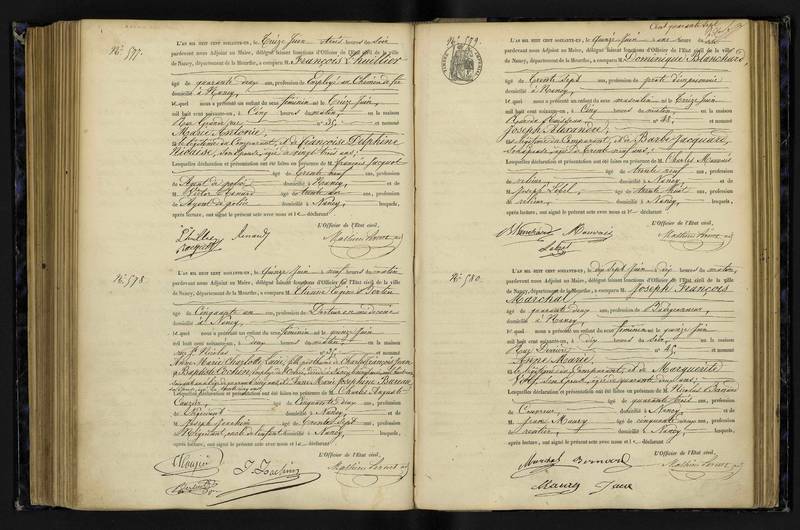 N.º 577.
L'AN MIL HUIT CENT SOIXANTE-UN, le Treize Juin à trois heures du soir
pardevant nous Adjoint au Maire, délégué faisant fonctions d'Officier de l'État civil de la ville
de Nancy, département de la Meurthe, a comparu M. François Lhuillier
âgé de quarante deux ans, profession d'Employé au Chemin de fer
domicilié à Nancy,
lequel nous a présenté un enfant du sexe féminin né le Treize Juin,
mil huit cent soixante-un, à Cinq heures du matin, en la maison
n° 35, et nommé
Marie Antonie,
fille légitime du Comparant, et de Françoise Delphine
son épouse, âgée de vingt trois ans;
Lesquelles déclaration et présentation ont été faites en présence de M. François Jacquot
âgé de Trente neuf ans, profession
d'Agent de police domicilié à Nancy, et de
M. Renard âgé de trente ans, profession
d'Agent de police domicilié à Nancy, lesquels,
après lecture, ont signé le présent acte avec nous et le déclarant
L'Officier de l'État civil,
Lhuillier Renard
Jacquot
N.º 578.
L'AN MIL HUIT CENT SOIXANTE-UN, le Quinze Juin à neuf heures du matin
pardevant nous Adjoint au Maire, délégué faisant fonctions d'Officier de l'État civil de la ville
de Nancy, département de la Meurthe, a comparu M. Etienne Eugène Bertin
âgé de Cinquante un ans, profession de Docteur en médecine
domicilié à Nancy,
lequel nous a présenté un enfant du sexe féminin né le quinze Juin
mil huit cent soixante-un, à deux heures du matin, en la maison
rue St Nicolas n° et nommé
Anne Marie Charlotte Lucie, fille posthume de Charles François Jean
Baptiste
Anne Marie Joséphine
Lesquelles déclaration et présentation ont été faites en présence de M. Charles Auguste
âgé de Cinquante deux ans, profession
de Négociant domicilié à Nancy, et de
M. Joseph Joachim âgé de Trente sept ans, profession
de Négociant domicilié à Nancy, lesquels,
après lecture, ont signé le présent acte avec nous et le déclarant
L'Officier de l'État civil,
J. Joachim
Cent quarante sept
N.º 579.
L'AN MIL HUIT CENT SOIXANTE-UN, le Quinze Juin à une heure du soir
pardevant nous Adjoint au Maire, délégué faisant fonctions d'Officier de l'État civil de la ville
de Nancy, département de la Meurthe, a comparu M. Dominique Blanchard
âgé de Trente sept ans, profession de prote d'imprimerie
domicilié à Nancy,
lequel nous a présenté un enfant du sexe masculin né le Treize Juin
mil huit cent soixante-un, à Cinq heures du matin, en la maison
n° 48, et nommé
Joseph Alexandre,
fils légitime du Comparant, et de Barbe Jacquard,
son épouse, âgée de Trente neuf ans;
Lesquelles déclaration et présentation ont été faites en présence de M. Charles Mauvais
âgé de trente neuf ans, profession
de relieur domicilié à Nancy, et de
M. Joseph Lebel âgé de trente huit ans, profession
de relieur, domicilié à Nancy, lesquels,
après lecture, ont signé le présent acte avec nous et le déclarant
L'Officier de l'État civil,
Blanchard Mauvais
Lebel
N.º 580.
L'AN MIL HUIT CENT SOIXANTE-UN, le dix sept Juin à dix heures du matin,
pardevant nous Adjoint au Maire, délégué faisant fonctions d'Officier de l'État civil de la ville
de Nancy, département de la Meurthe, a comparu M. Joseph François
Marchal,
âgé de quarante deux ans, profession de
domicilié à Nancy,
lequel nous a présenté un enfant du sexe féminin né le quinze Juin
mil huit cent soixante-un, à dix heures du soir, en la maison
n° 45, et nommé
Anne Marie,
fille légitime du Comparant, et de Marguerite
son épouse, âgée de quarante ans;
Lesquelles déclaration et présentation ont été faites en présence de M. Nicolas
âgé de quarante huit ans, profession
domicilié à Nancy, et de
M. Maury âgé de cinquante ans, profession
de rentier, domicilié à Nancy, lesquels,
après lecture, ont signé le présent acte avec nous et le déclarant
L'Officier de l'État civil,
Marchal
Maury